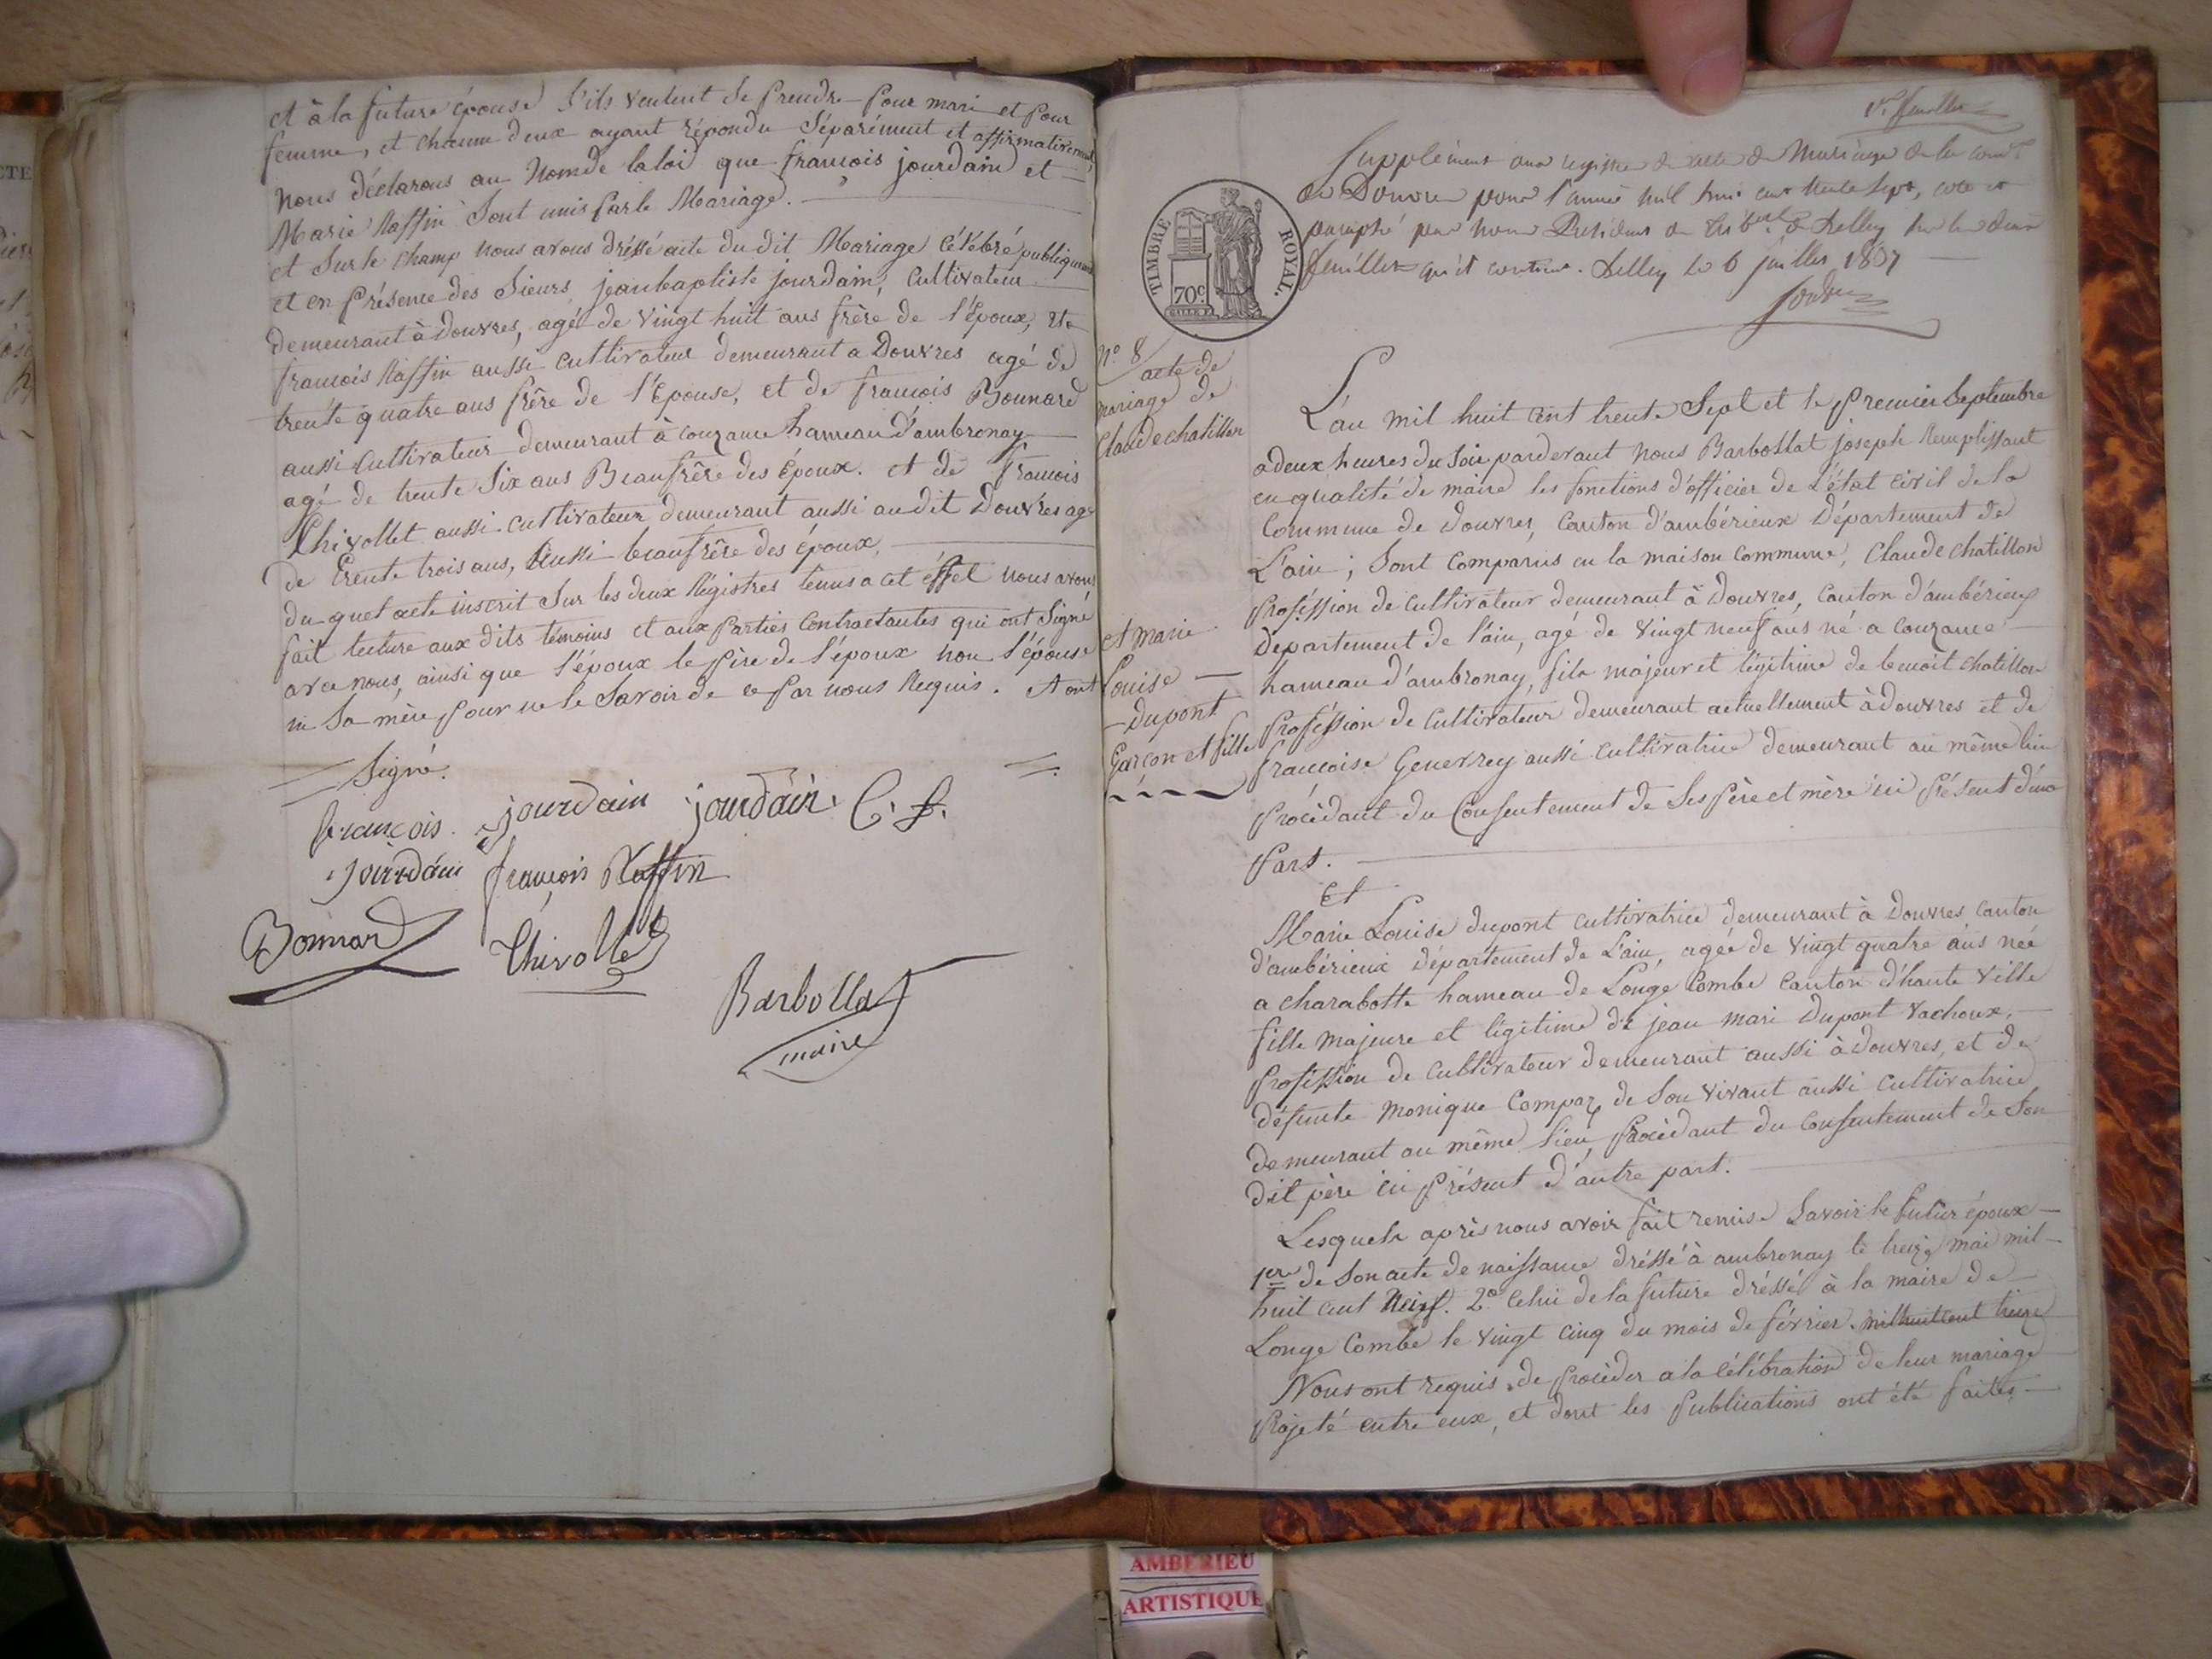 et à la future épouse s'ils veulent se prendre pour mari et pour
femme, et chacun deux ayant répondu séparément et affirmativement,
nous déclarons au nom de la loi que françois jourdain et
Marie Raffin sont unis par le Mariage.
et sur le champ nous avons dréssé acte du dit Mariage célébré publiquement
et en présence des sieurs jean baptiste jourdain, cultivateur
demeurant à Douvres, agé de vingt huit ans frère de l'époux, et
françois Raffin aussi cultivateur demeurant a Douvres agé de
trente quatre ans frêre de l'épouse, et de françois Bonnard
aussi cultivateur demeurant à couzance hameau d'ambronay
agé de trente six ans Beaufrêre des époux. et de françois
Thivollet aussi cultivateur demeurant aussi au dit Douvres agé
de trente trois ans, aussi beaufrêre des époux,
du quel acte inscrit sur les deux Régistres tenus a cet éffet nous avons
fait lecture aux dits témoins et aux parties contractantes qui ont signé
avec nous, ainsi que l'époux le père de l'époux non l'épouse
ni sa mère pour ne le savoir de ce par nous Requis. et ont
signé.
françois jourdain jourdain C. f.
jourdain françois Raffin
Bonnard Thivollet
Barbollat
maire
1er feuillet
Supplément aux registre de acte de Mariage de la comne
de Douvre pour l'année mil huit cent trente sept, coté et
paraphé par nous Président du Tribal de Belley sur les deux
feuillets qu'il contient. Belley le 6 juillet 1837
TIMBRE ROYAL.
70c
No 8
acte de
mariage de
Claude chatillon
et marie
Louise
Dupont
Garcon et fille
L'an mil huit cent trente sept et le premier septembre
a deux heures du soir pardevant nous Barbollat joseph Remplissant
en qualité de maire les fonctions d'officier de L'état civil de la
Commune de Douvres, canton d'ambérieux Département de
L'ain ; sont comparus en la maison commune, Claude chatillon
proféssion de cultivateur demeurant à Douvres, canton d'ambérieux
département de l'ain, agé de vingt neuf ans né a couzance
hameau d'ambronay, fils majeur et légitime de benoit chatillon
proféssion de cultivateur demeurant actuellement à douvres et de
françoise Genevrey aussi cultivatrice demeurant au même lieu
procèdant du consentement de ses père et mère ici présent d'une
part.
Et
Marie Louise dupont cultivatrice demeurant à Douvres canton
d'ambérieux département de L'ain, agée de vingt quatre ans née
a charabotte hameau de Longe Combe canton d'haute ville
fille majeure et légitime de jean mari Dupont vachoux,
proféssion de cultivateur demeurant aussi à douvres, et de
défunte monique Compoz de son vivant aussi cultivatrice
demeurant au même lieu, procèdant du consentement de son
dit père ici présent d'autre part.
Lesquels après nous avoir fait remise savoir le futur époux
1er de son acte de naissance dréssé à ambronay le treize mai mil
huit cent Neuf. 2o Celui de la future dréssé à la maire de
Longe Combe le vingt cinq du mois de février. mil huit cent treize
Nous ont requis de procéder a la célébration de leur mariage
projeté entre eux, et dont les publications ont été faites
AMBERIEU
ARTISTIQUE